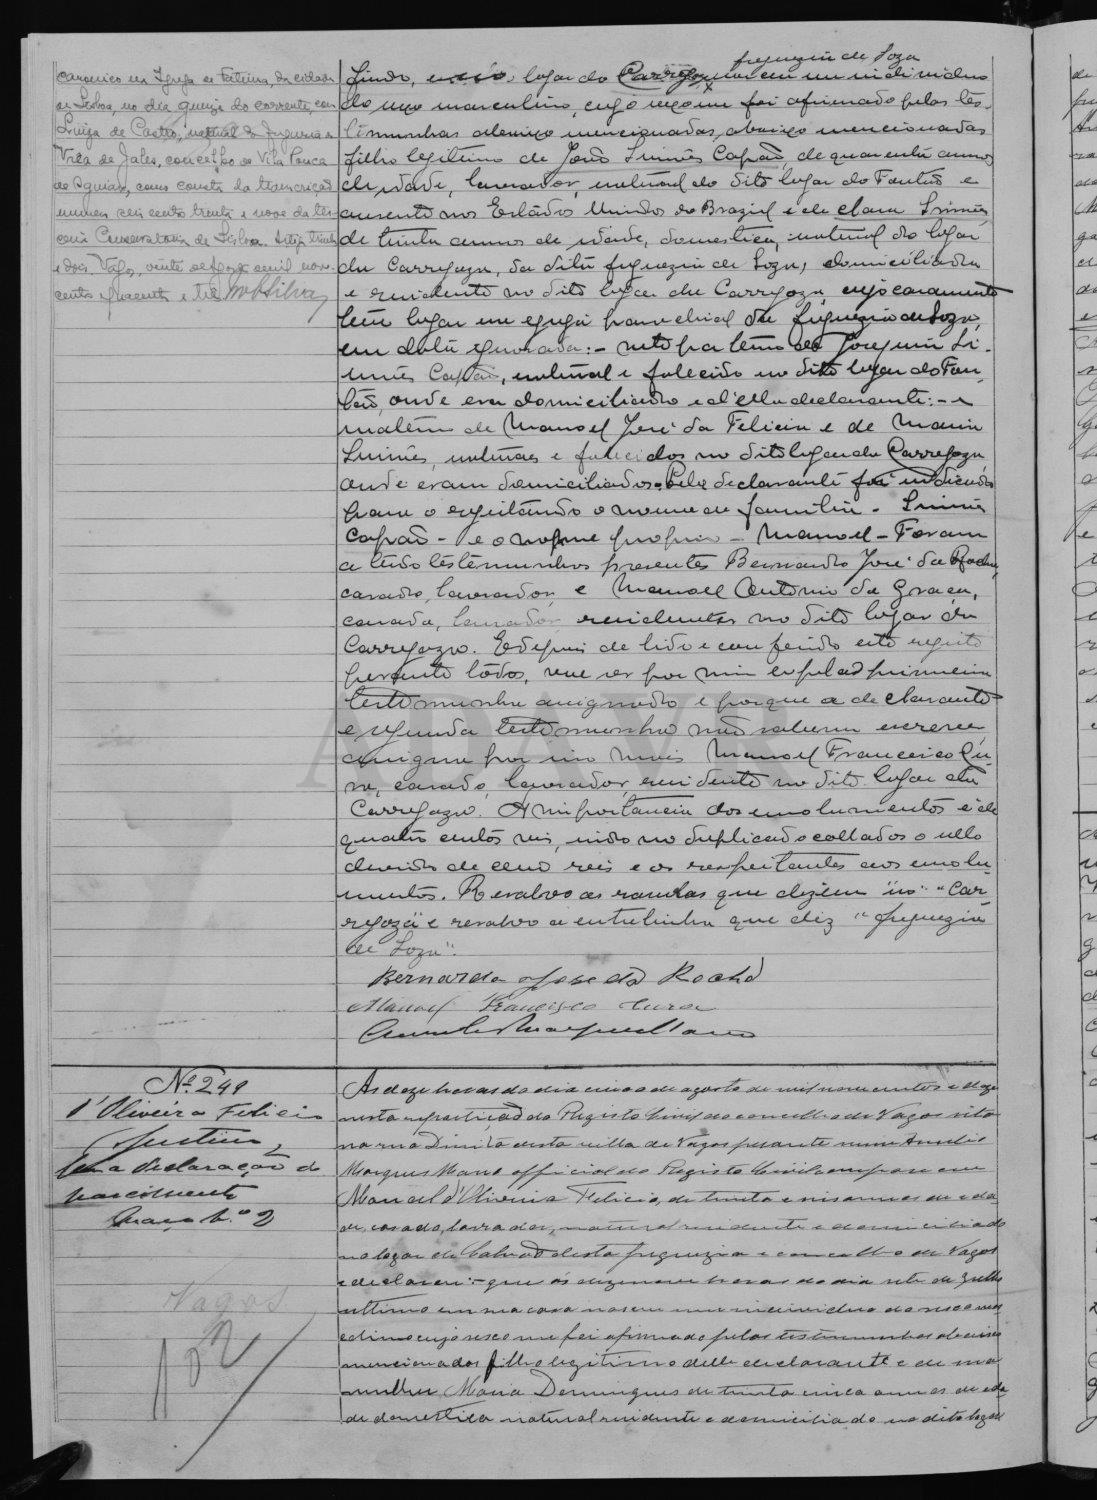 canonico na Igreja de Fatima, da cidade
de Lisboa, no dia quinze do corrente, com
Luiza de Castro, natural da freguesia de
Vreia de Jales, concelho de Vila Pouca
de Aguiar, como consta da transcrição
numero seis centos trinta e nove da ter-
ceira Conservatoria de Lisboa. Artigo trinta
e dois. Vagos, vinte de Agosto de mil nove-
centos quarenta e tres. MSilva
freguezia de Soza
findo, no lugar da Carregoza nasceu um individuo
do sexo masculino, cujo sexo me foi afirmado pelas tes-
timunhas abaixo mencionadas, abaixo mencionadas
filho legitimo de João Simões Capão, de quarenta annos
de idade, lavrador, natural do dito lugar do Fontão e
ausente nos Estados Unidos do Brazil e de Clara Simões
de trinta annos de idade, domestica, natural do lugar
da Carregoza, da dita freguezia de Soza, domiciliada
e residente no dito lugar da Carregoza, cujo casamento
teve lugar na egreja parochial da freguezia de Soza,
em data ignorada:- neto paterno de Joaquim Si-
mões Capão, natural e falecido no dito lugar do Fon-
tão, onde era domiciliado e d'ella declarante:- e
materno de Manoel José da Felicia e de Maria
Simões, naturaes e falecidos no dito lugar da Carregoza
onde eram domiciliados. Pela declarante foi indicado
para o registando o nome de familia - Simões
Capão - e o nome proprio - Manoel - Foram
a tudo testemunhas presentes Bernardo José da Rocha,
casado, lavrador, e Manoel Antonio da Graça,
casado, lavrador, residentes no dito lugar da
Carregoza. E depois de lido e conferido este registo
perante todos, vae ser por mim e pela primeira
testemunha assignado e porque a declarante
e segunda testemunha não sabem escrever
assigna por mais Manoel Francisco Cu-
ra, casado, lavrador, residente no dito lugar da
Carregoza. A importancia dos emolumentos é de
quatro centos reis, indo no duplicado collados o sello
devido de cem reis e os respeitantes aos emolu-
mentos. Resalvo as rasuras que dizem "no" "Car-
regoza" e resalvo a entrelinha que diz "freguezia
de Soza".
Bernardo Jose da Rocha
Manoel Francisco Cura
ADAVR
Nº 249
d'Oliveira Felicio
Com a declaração de
nascimento
Maço n.º 2
Vagos
102
As doze horas do dia cinco de agosto de mil novecentos e doze
nesta repartição do Registo Civil do concelho de Vagos sita
na rua Direita desta villa de Vagos perante mim
Marques Mano official do Registo Civil compareceu
Manoel d'Oliveira Felicio, de trinta e seis annos de ida-
de, casado, lavrador, natural residente e domiciliado
no lugar de desta freguezia e concelho de Vagos
e declarou:- que ás dezenove horas do dia sete de Julho
ultimo em sua casa nasceu um individuo do sexo mas-
culino cujo sexo me foi afirmado pelas testemunhas abaixo
mencionadas filho legitimo delle declarante e de sua
mulher Maria Domingues de trinta e cinco annos de ida-
de domestica natural residente e domiciliada no dito lugar